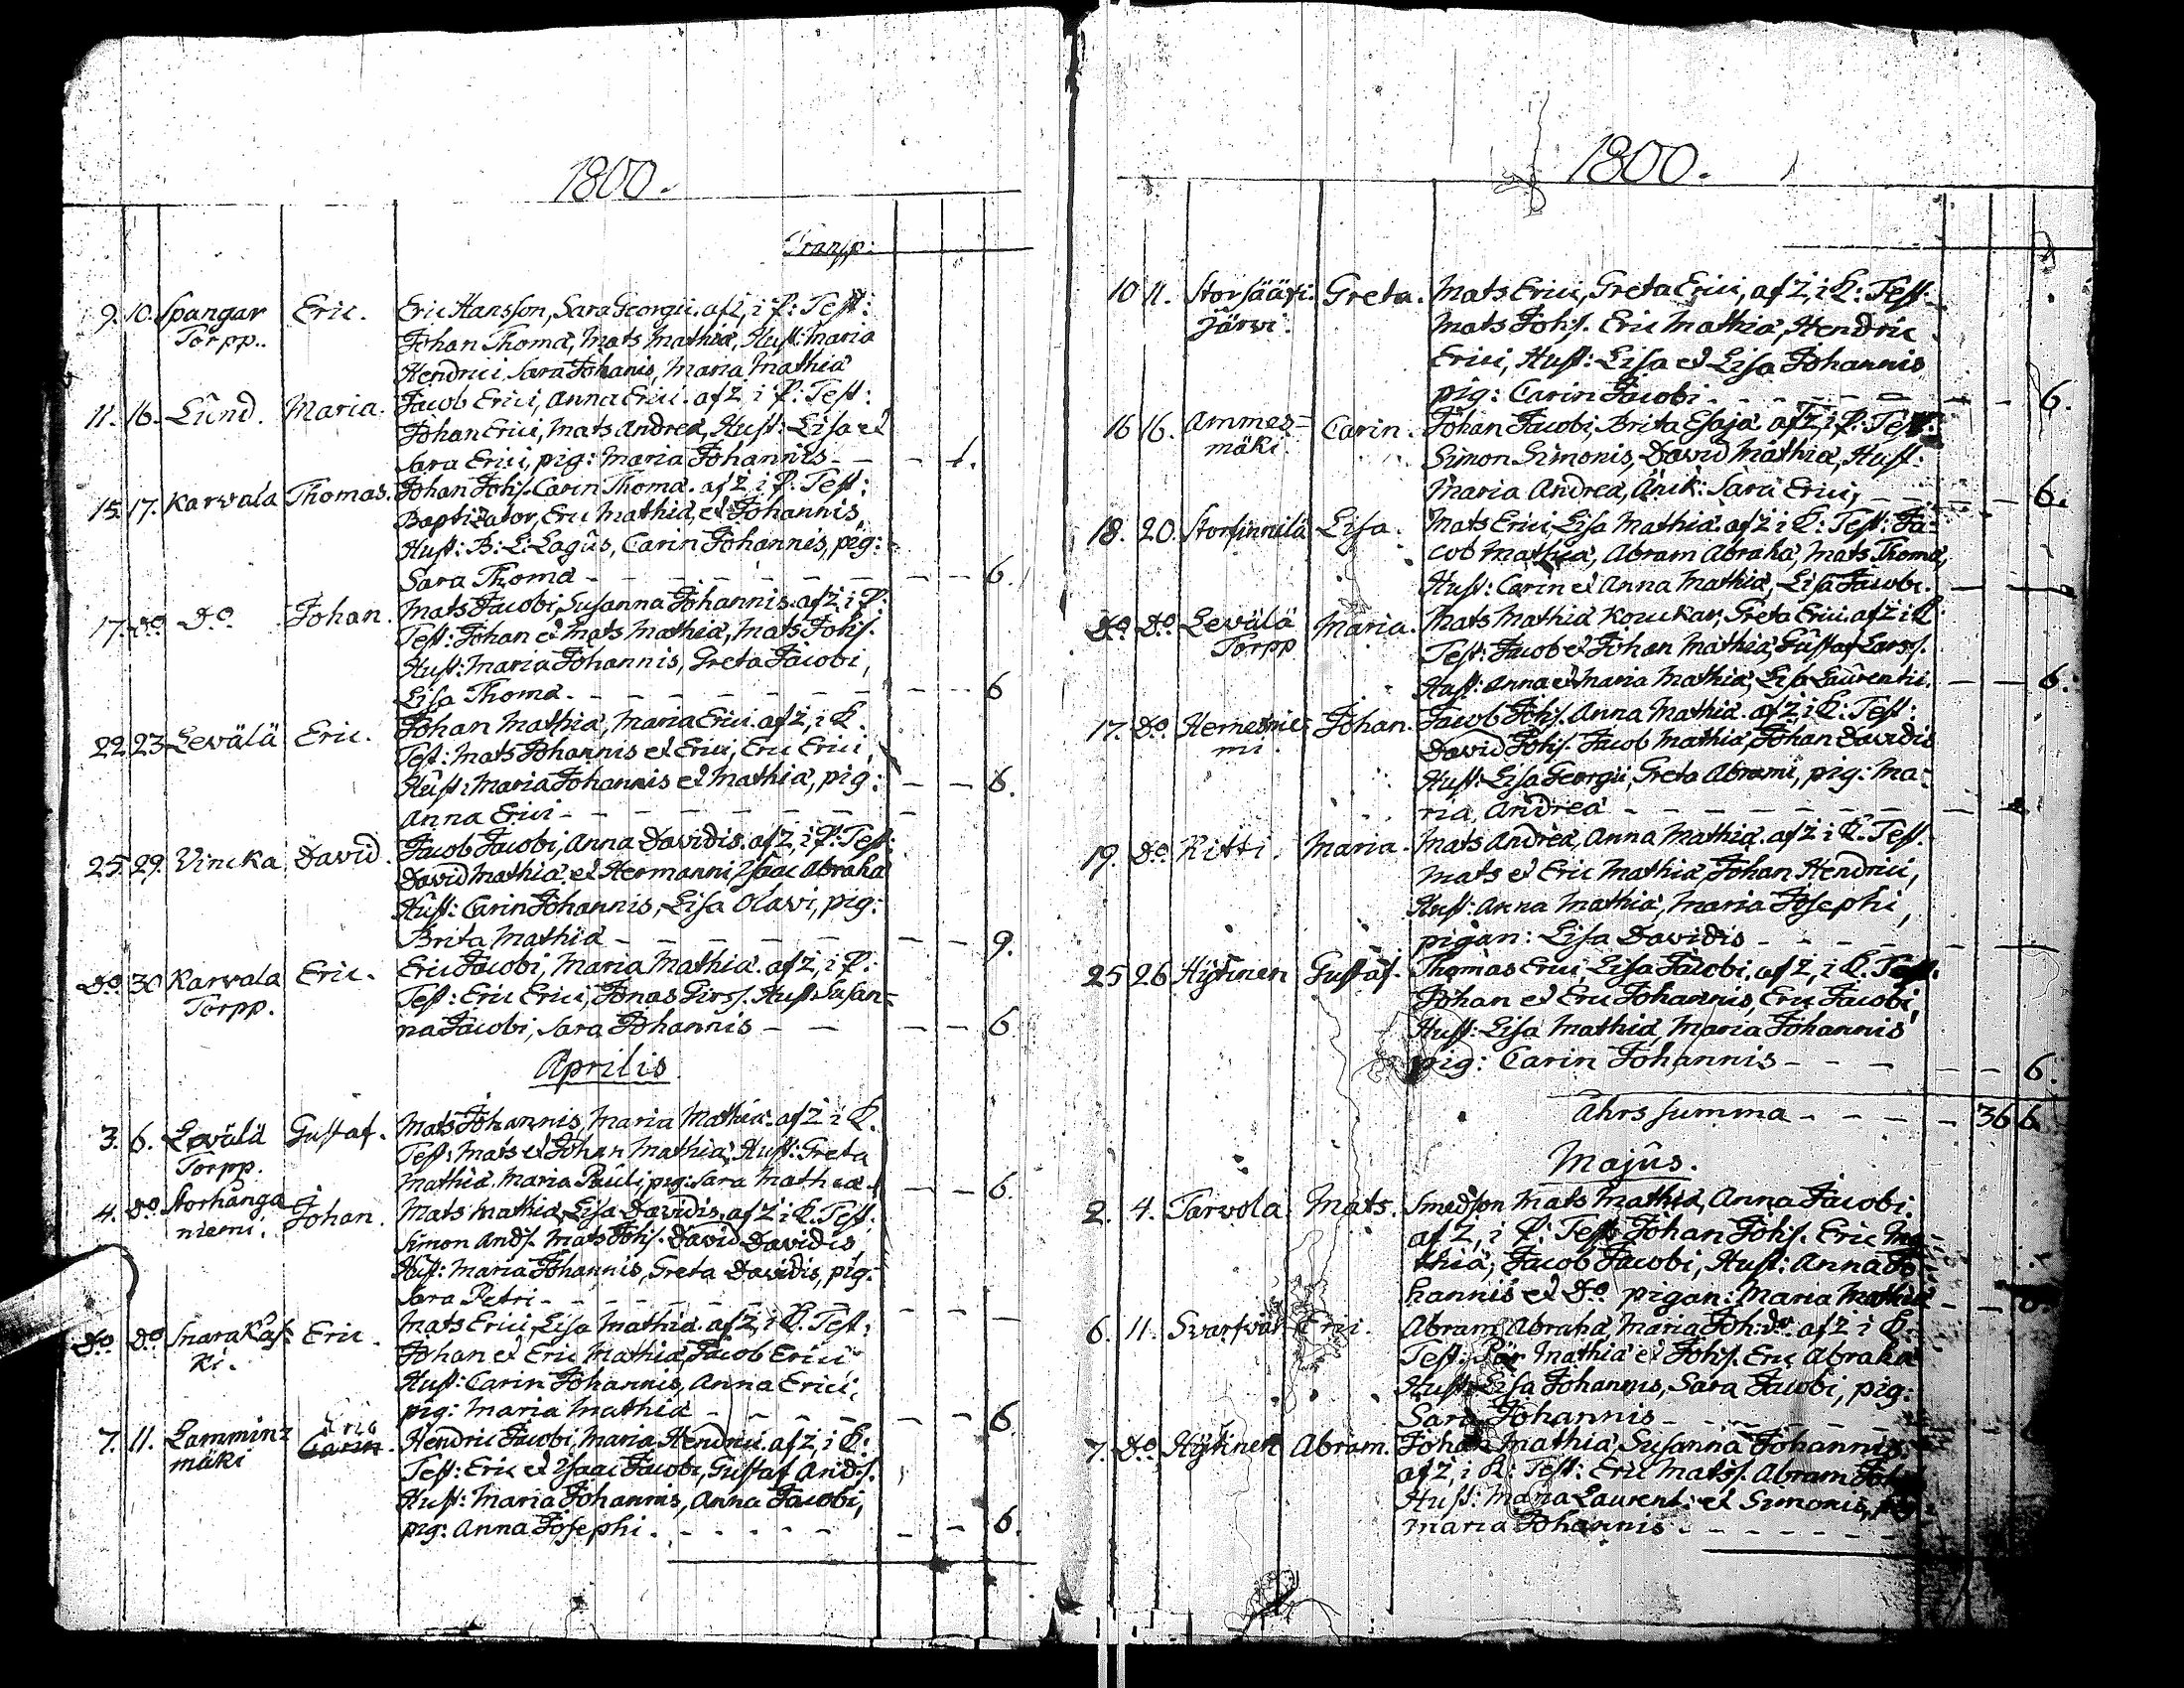 1800.
Transp:
9. 10. Spangar Eric. Eric Hansson, Sara Georgii. af Z, i P: Test:
Torpp. Johan Thomæ, Mats Mathiæ, Hust: Maria
Hendrici, Sara Johanis, Maria Mathiæ
11. 16. Lund. Maria. Jacob Erici, Anna Erici. af Z i P: Test:
Johan Erici, Mats Andreæ, Hust: Lisa et
Sara Erici, pig: Maria Johannis - - - 1.
15. 17. Karvala Thomas. Johan Johs. Carin Thomæ. af Z i P: Test:
Baptizator, Eric Mathiæ, et Johannis,
Hust: B: L: Lagus, Carin Johannis, pig:
Sara Thomæ - - - - - - - - 6.
17. Do Do. Johan. Mats Jacobi, Susanna Johannis. af Z i P:
Test: Johan et Mats Mathiæ, Mats Johs.
Hust: Maria Johannis, Greta Jacobi,
Lisa Thomæ. - - - - - - - - 6
22 23 Levälä Eric. Johan Mathiæ, Maria Erici. af Z, i K.
Test: Mats Johannis et Erici, Eric Erici,
Hust: Maria Johannis et Mathiæ, pig: - - 6.
Anna Erici - - - - - - -
25. 29. Vincka David. Jacob Jacobi, Anna Davidis. af Z, i P: Test:
David Mathiæ et Hermanni Isaac Abrahæ
Hust: Carin Johannis, Lisa Olavi, pig:
Brita Mathiæ - - - - - - - 9.
Do 30 Karvala Eric. Eric Jacobi, Maria Mathiæ. af Z, i P:
Torpp. Test: Eric Erici, Jonas Girss. Hust: Susan=
na Jacobi, Sara Johannis - - - - 6
Aprilis
3. 6. Levälä Gustaf. Mats Johannis, Maria Mathiæ. af Z i K.
Torpp. Test: Mats et Johan Mathiæ, Hust: Greta
Mathiæ, Maria Pauli, pig: Sara Mathiæ - - 6.
4. Do Storhånga Johan. Mats Mathiæ, Lisa Davidis. af Z i K. Test:
niemi. Simon Ands. Mats Johs. David Davidis,
Hust: Maria Johannis, Greta Davidis, pig:
Sara Petri - - - - - - - -
Do Do Snarakäs= Eric. Mats Erici, Lisa Mathiæ. af Z, i K. Test:
ki. Johan et Eric Mathiæ, Jacob Erici
Hust: Carin Johannis, Anna Erici,
pig: Maria Mathiæ - - - - - - 6
7. 11. Lammin= Eric Hendric Jacobi, Maria Hendrici. af Z, i K:
mäki Carin. Test: Eric et Isaac Jacobi, Gustaf Ands.
Hust: Maria Johannis, Anna Jacobi,
pig: Anna Josephi. - - - - - - 6.
1800.
10 11. Storsääri= Greta. Mats Erici, Greta Erici, af Z, i K: Test.
järvi. Mats Johs. Eric Mathiæ, Hendric
Erici, Hust: Lisa et Lisa Johannis
pig: Carin Jacobi - - - - - - 6.
16 16. Ammes= Carin. Johan Jacobi, Brita Esajæ. af Z, i P: Test:
mäki. Simon Simonis, David Mathiæ, Hust:
Maria Andreæ, Änk: Sara Erici, - - - 6.
18. 20. Storfinnilä Lisa. Mats Erici, Lisa Mathiæ. af Z i K: Test: Ja=
cob Mathiæ, Abram Abrahæ, Mats Thomæ,
Hust: Carin et Anna Mathiæ, Lisa Jacobi. - -
Do Do. Levälä Maria. Mats Mathiæ Kouckar, Greta Erici. af Z i K
Torpp Test: Jacob et Johan Mathiæ, Gustaf Larss.
Hust: Anna et Maria Mathiæ, Lisa Laurentii. - - 6.
17. Do. Hernesnie= Johan. Jacob Johs. Anna Mathiæ. af Z i K: Test:
mi. David Johs. Jacob Mathiæ, Johan Davidis
Hust: Lisa Georgii, Greta Abrami, pig: Ma=
ria Andreæ - - - - - - - -
19. Do. Ritti. Maria. Mats Andreæ, Anna Mathiæ. af Z i K. Test.
Mats et Eric Mathiæ, Johan Hendrici,
Hust: Anna Mathiæ, Maria Josephi,
pigan: Lisa Davidis - - - -
25 26. Hytinen Gustaf. Thomas Erici, Lisa Jacobi. af Z, i K. Test.
Johan et Eric Johannis, Eric Jacobi,
Hust: Lisa Mathiæ, Maria Johannis
pig: Carin Johannis - - - - - 6.
Åhrs summa - - - - - 36 6.
Majus.
2. 4. Tarvola Mats. Smedson Mats Mathiæ, Anna Jacobi.
af Z, i P: Test: Johan Johs. Eric Ma=
thiæ, Jacob Jacobi, Hust: Anna Jo=
hannis et Do. pigan: Maria Mathiæ
6. 11. Eric. Abram Abrahæ, Maria Joh:. af Z i K:
Test: Pär Mathiæ et Johs. Eric Abrahæ
Hust: Lisa Johannis, Sara Jacobi, pig:
Sara Johannis - - - - -
7. Do. Hytinen Abram. Johan Mathiæ, Susanna Johannis.
af Z, i K: Test: Eric Matss. Abram
Hust: Maria Laurent: et Simonis,
Maria Johannis - - - - - -